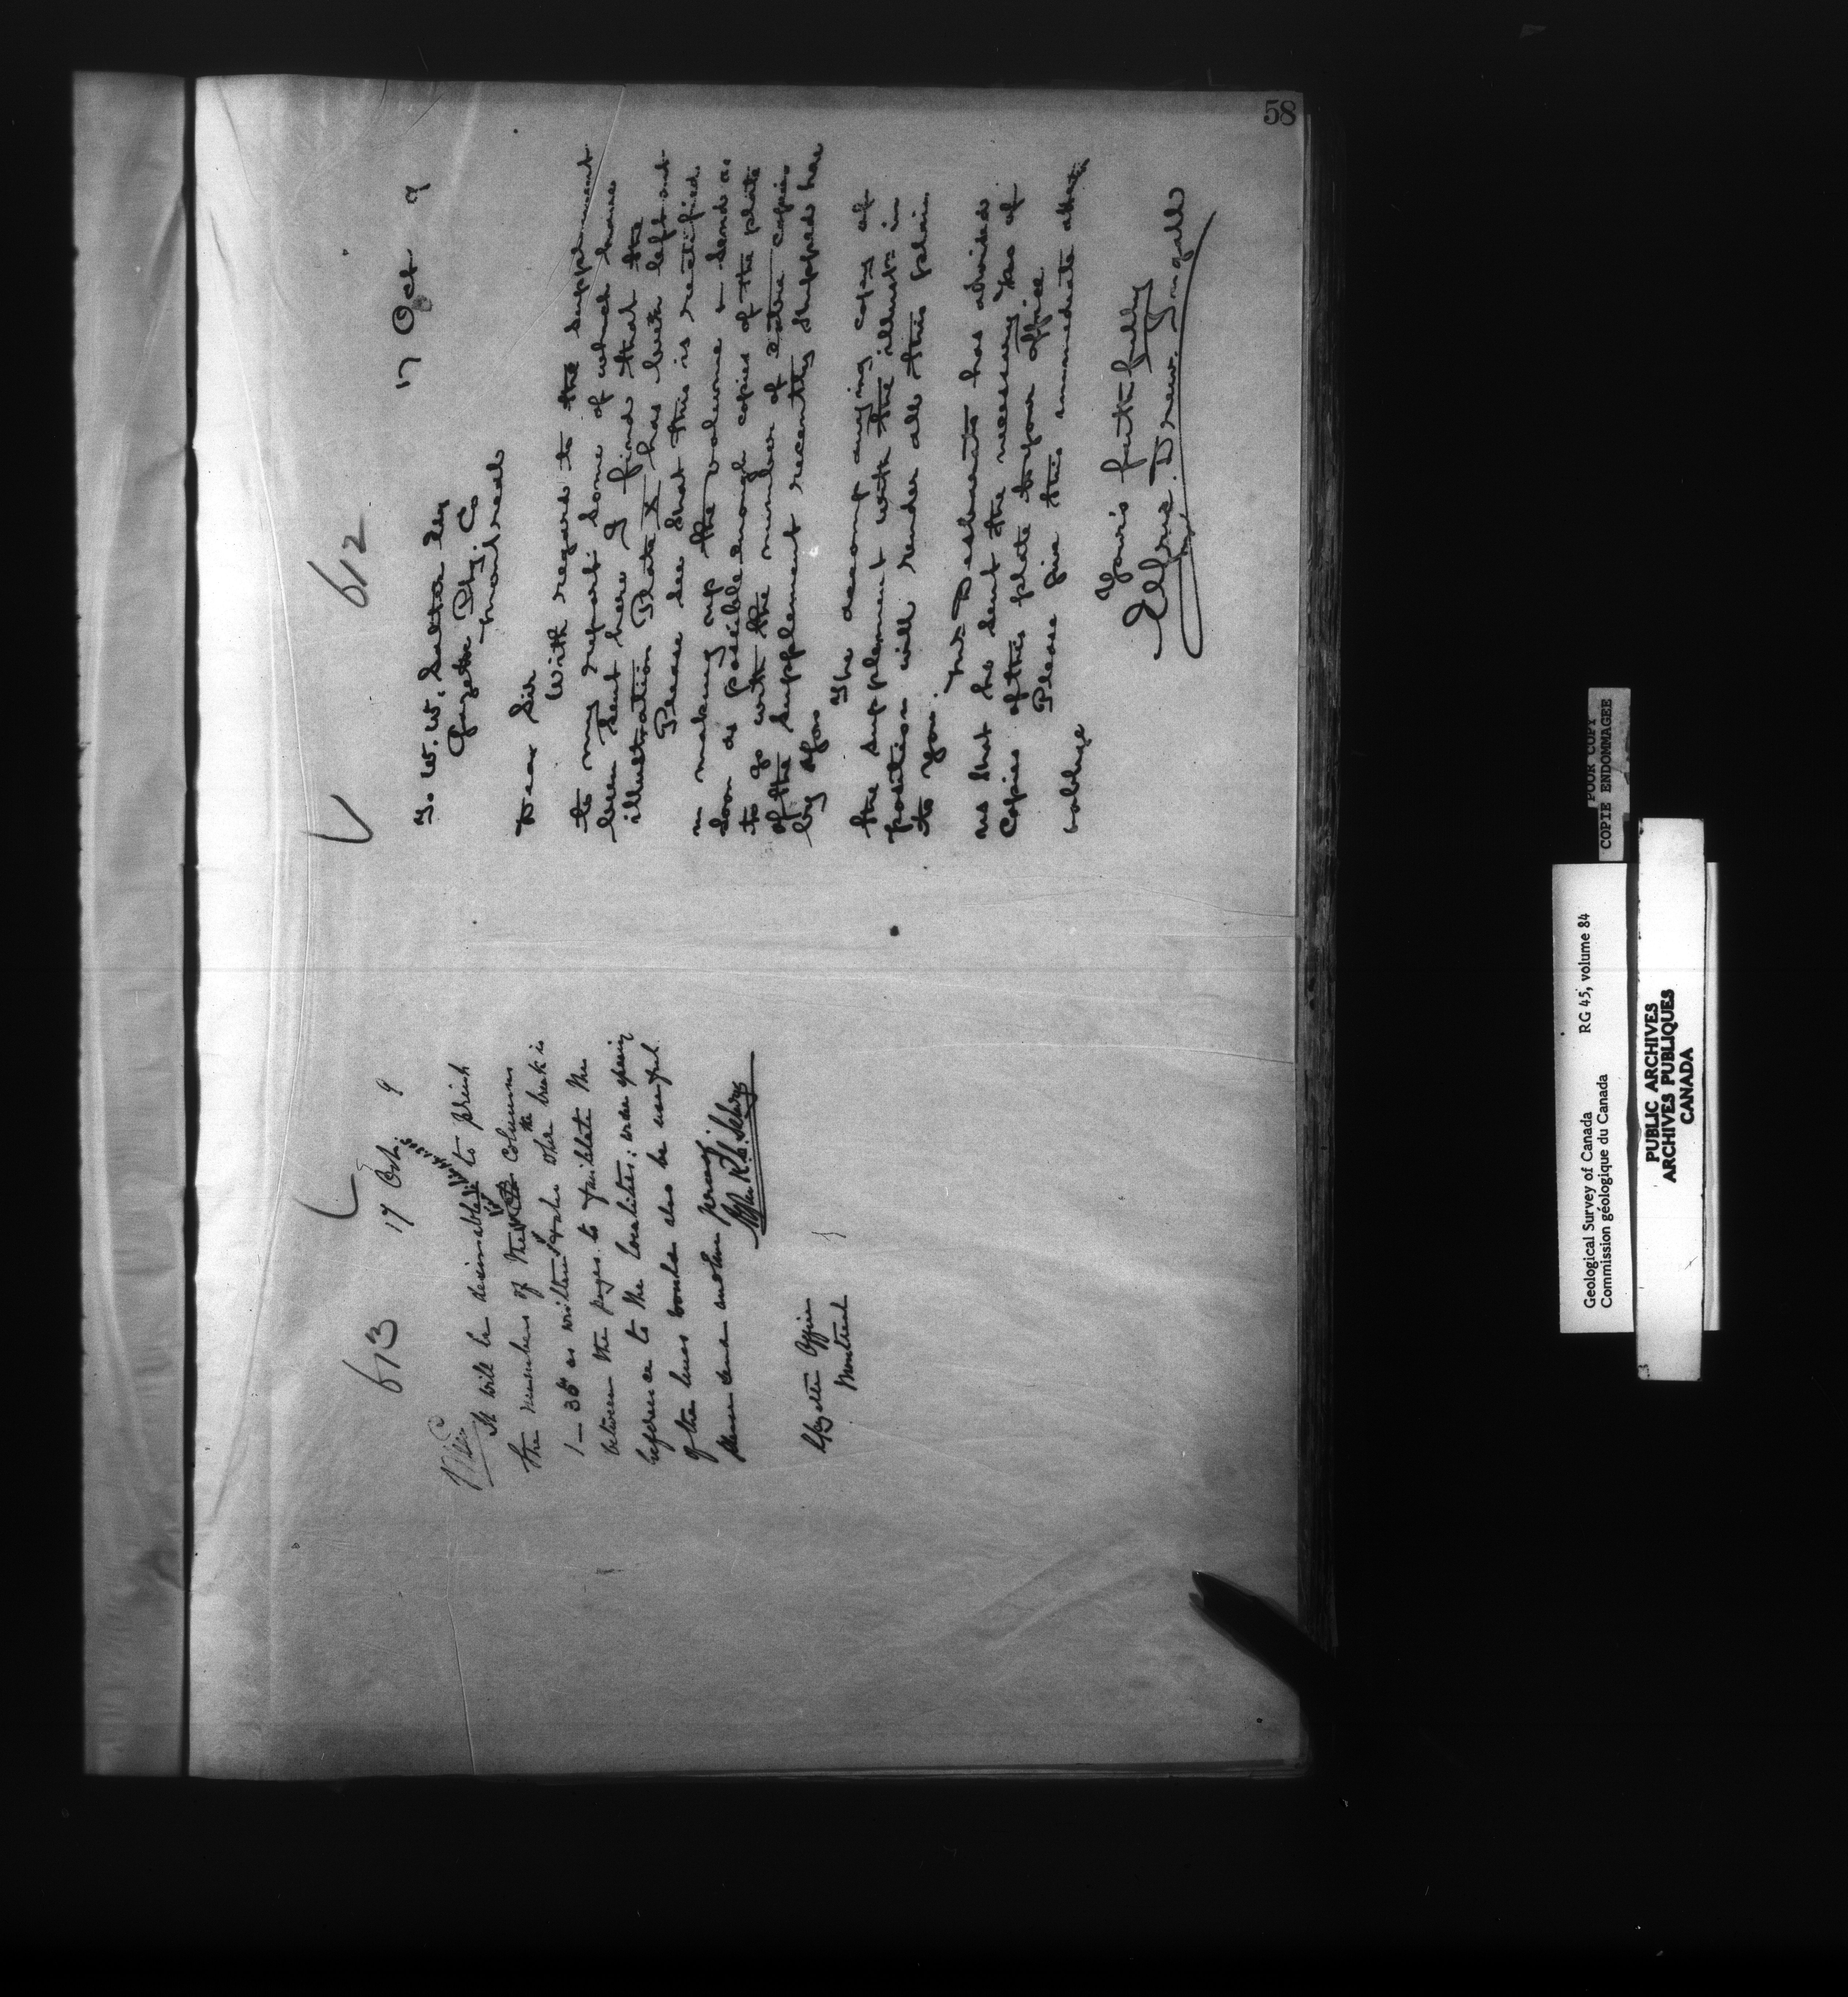 58
612
17 Oct 9
To W. W. Sutton Esq
Gazette Ptg. Co
Montreal
Dear Sir
With regard to the supplement
to my report some of which have
been sent here I find that the
illustration Plate X has been left out
Please see that this is rectified
in making up the volume & send as
soon as possible enough copies of the plate
to go with the number of extra copies
of the supplement recently shipped here
by you
The accompanying copy of
the supplement with the illustn in
position will render all this plain
to you.
Mr Desbarats has advised
us that he sent the necessary No of
copies of this plate to your office
Please give this immediate attn
& oblige
Yours faithfully
Elfric Drew Ingall
613
17 Oct. 9
It will be desirable to print
the numbers of the columns
1 — 36 as written the break is
between the pages to facilitate the
reference to the localities: wider spacing
of the lines would also be useful
Please send another proof.
Alfred R. C. Selwyn
Gazette Office
Montreal
POOR COPY
COPIE ENDOMMAGEE
Geological Survey of Canada
Commission géologique du Canada
RG 45, volume 84
PUBLIC ARCHIVES
ARCHIVES PUBLIQUES
CANADA